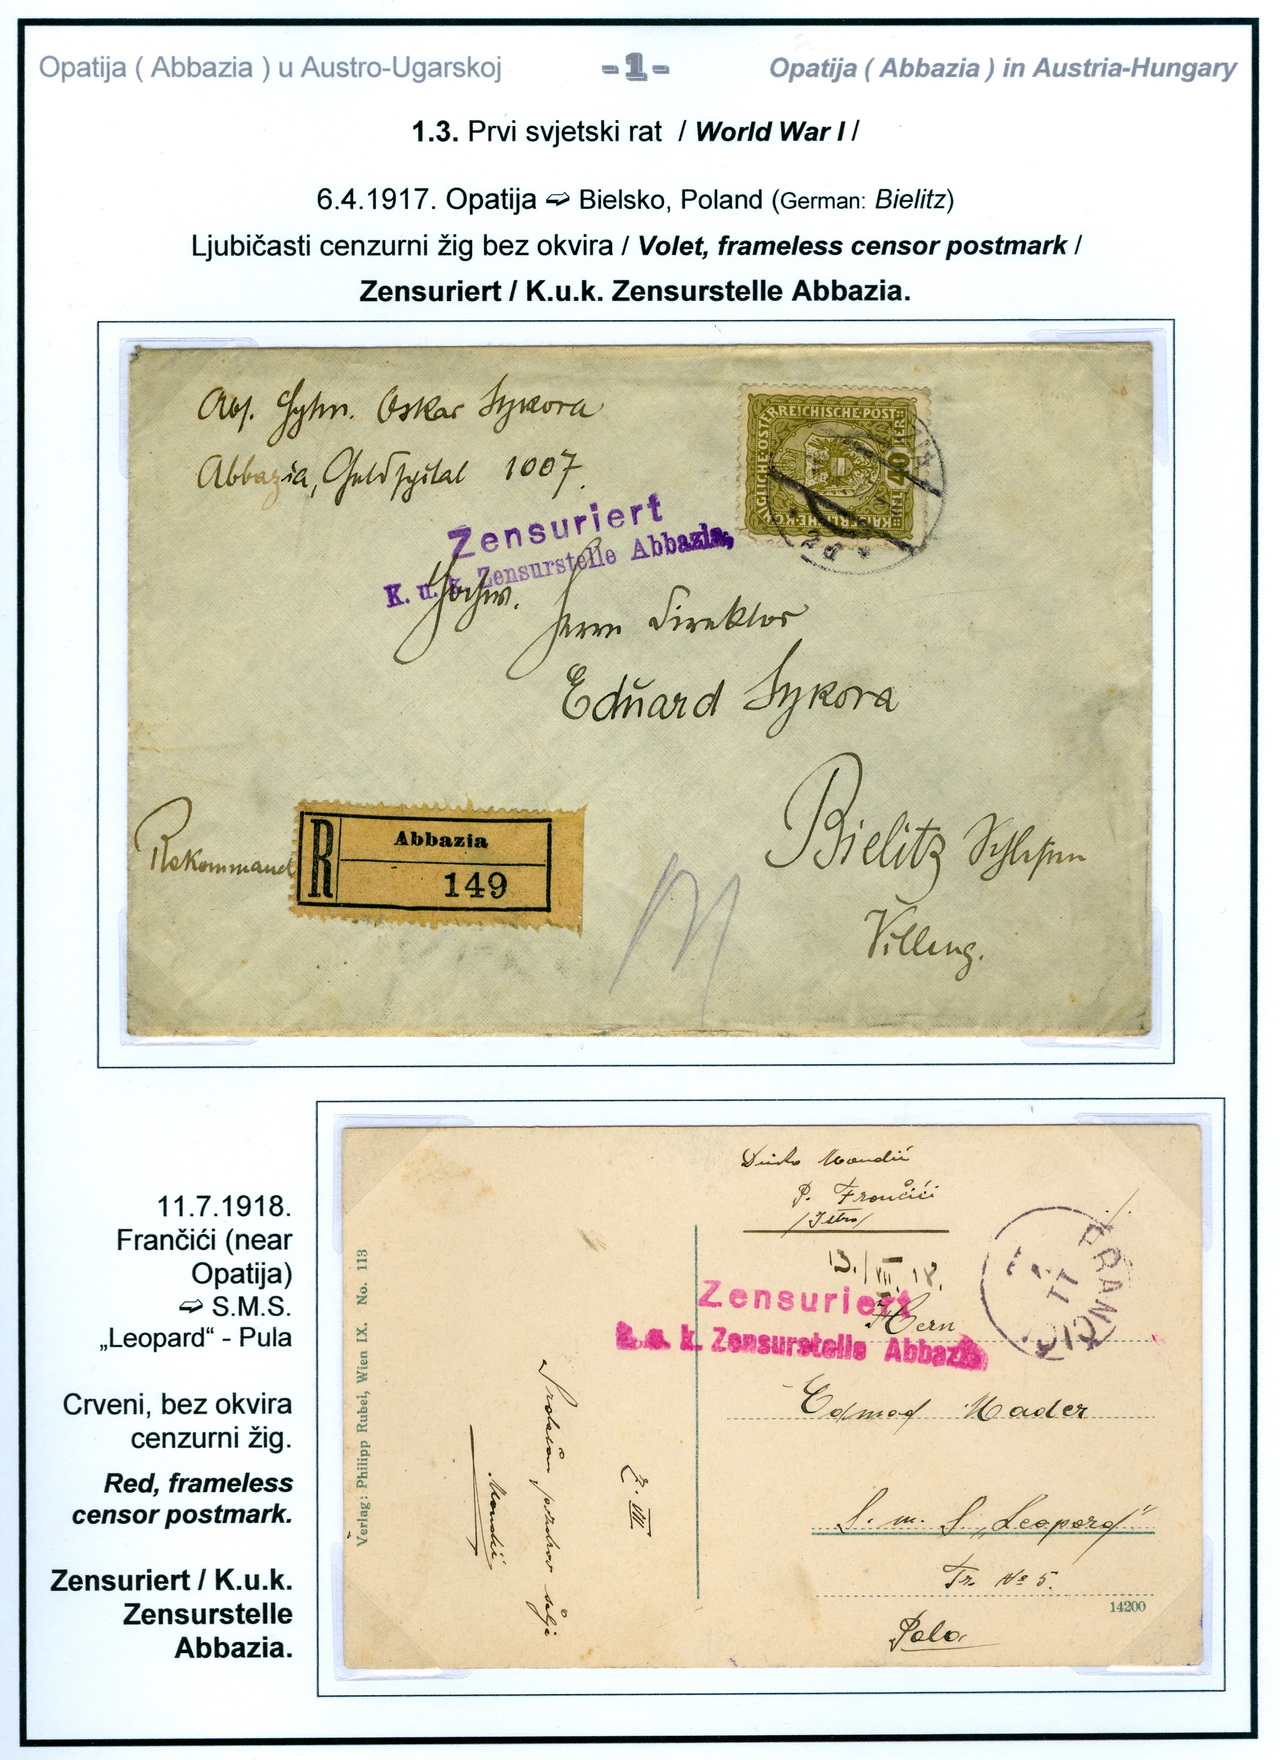 Opatija ( Abbazia ) u Austro-Ugarskoj
-1-
Opatija ( Abbazia ) in Austria-Hungary
1.3. Prvi svjetski rat / World War I /
6.4.1917. Opatija ➫ Bielsko, Poland (German: Bielitz)
Ljubičasti cenzurni žig bez okvira / Volet, frameless censor postmark /
Zensuriert / K.u.k. Zensurstelle Abbazia.
Oskar Sykora
Abbazia, 1007.
KAISERLICHE KÖNIGLICHE ÖSTERREICHISCHE POST
40
Zensuriert
K. u. k. Zensurstelle Abbazia,
Hochw. Herrn Direktor
Eduard Sykora
Bielitz Schlesien
Rekommand
R
Abbazia
149
11.7.1918.
Frančići (near
Opatija)
➫ S.M.S.
„Leopard“ - Pula
Crveni, bez okvira
cenzurni žig.
Red, frameless
censor postmark.
Zensuriert / K.u.k.
Zensurstelle
Abbazia.
Verlag: Philipp Rubel, Wien IX. No. 113
Mandić
P. Frančići
13./VII. 18.
FRANČIĆI
Zensuriert
K. u. k. Zensurstelle Abbazia
Herrn
Edmod Mader
S. m. S. „Leopard“
Tr. No 5.
Pola
14200
Srdačan pozdrav šalje
Mandić